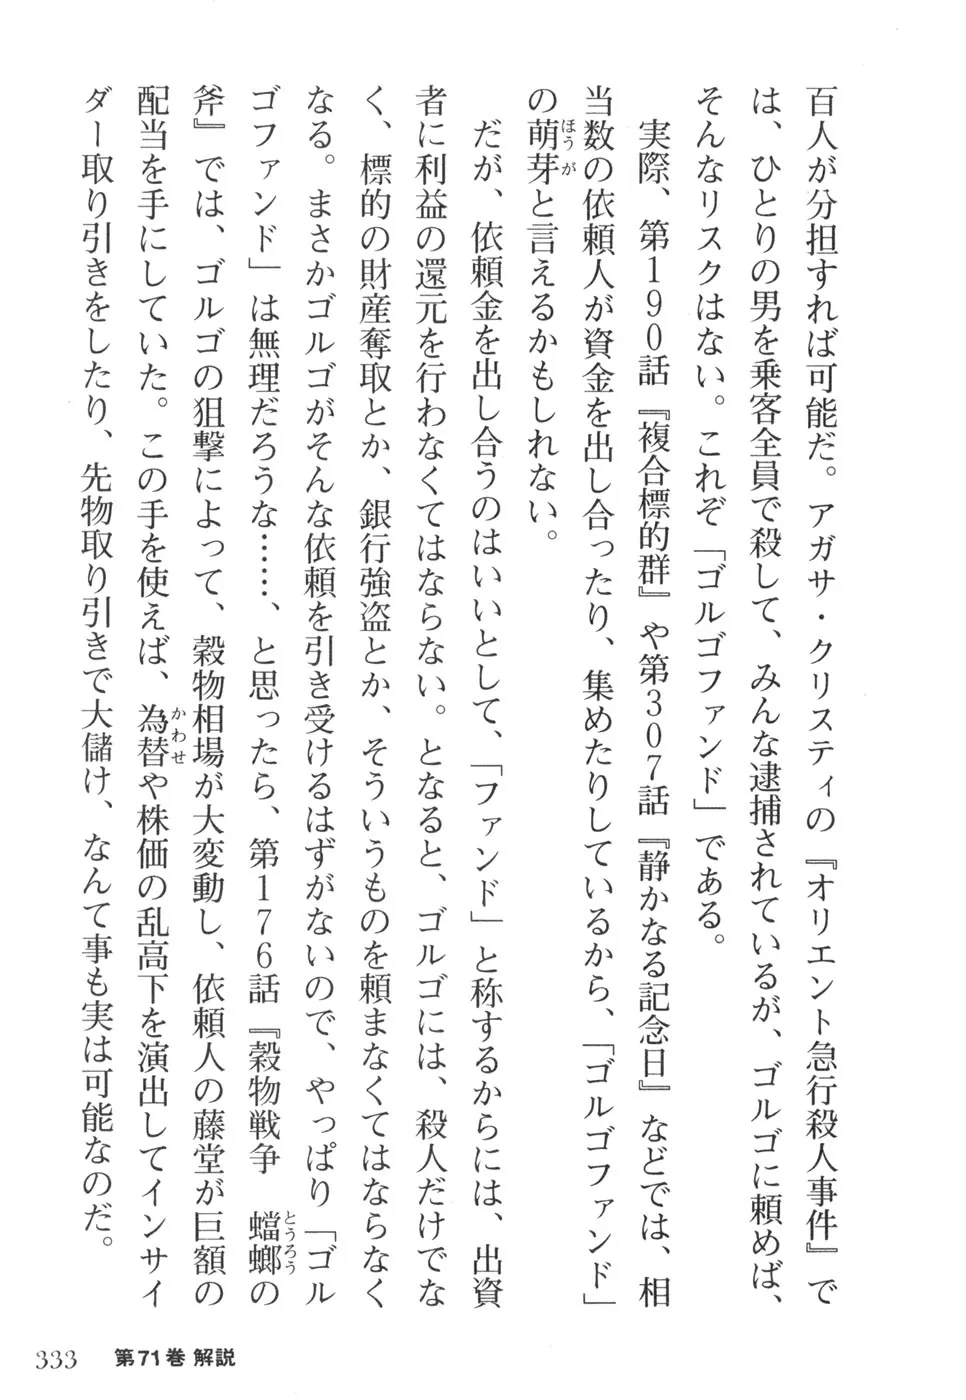 百人が分担すれば可能だ。アガサ・クリスティの『オリエント急行殺人事件』で
は、ひとりの男を乗客全員で殺して、みんな逮捕されているが、ゴルゴに頼めば、
そんなリスクはない。これぞ「ゴルゴファンド」である。
　実際、第190話『複合標的群』や第307話『静かなる記念日』などでは、相
当数の依頼人が資金を出し合ったり、集めたりしているから、「ゴルゴファンド」
の萌芽と言えるかもしれない。
ほうが
　だが、依頼金を出し合うのはいいとして、「ファンド」と称するからには、出資
者に利益の還元を行わなくてはならない。となると、ゴルゴには、殺人だけでな
く、標的の財産奪取とか、銀行強盗とか、そういうものを頼まなくてはならなく
なる。まさかゴルゴがそんな依頼を引き受けるはずがないので、やっぱり「ゴル
ゴファンド」は無理だろうな……、と思ったら、第176話『穀物戦争　蟷螂の
とうろう
斧』では、ゴルゴの狙撃によって、穀物相場が大変動し、依頼人の藤堂が巨額の
配当を手にしていた。この手を使えば、為替や株価の乱高下を演出してインサイ
かわせ
ダー取り引きをしたり、先物取り引きで大儲け、なんて事も実は可能なのだ。
333　第71巻 解説